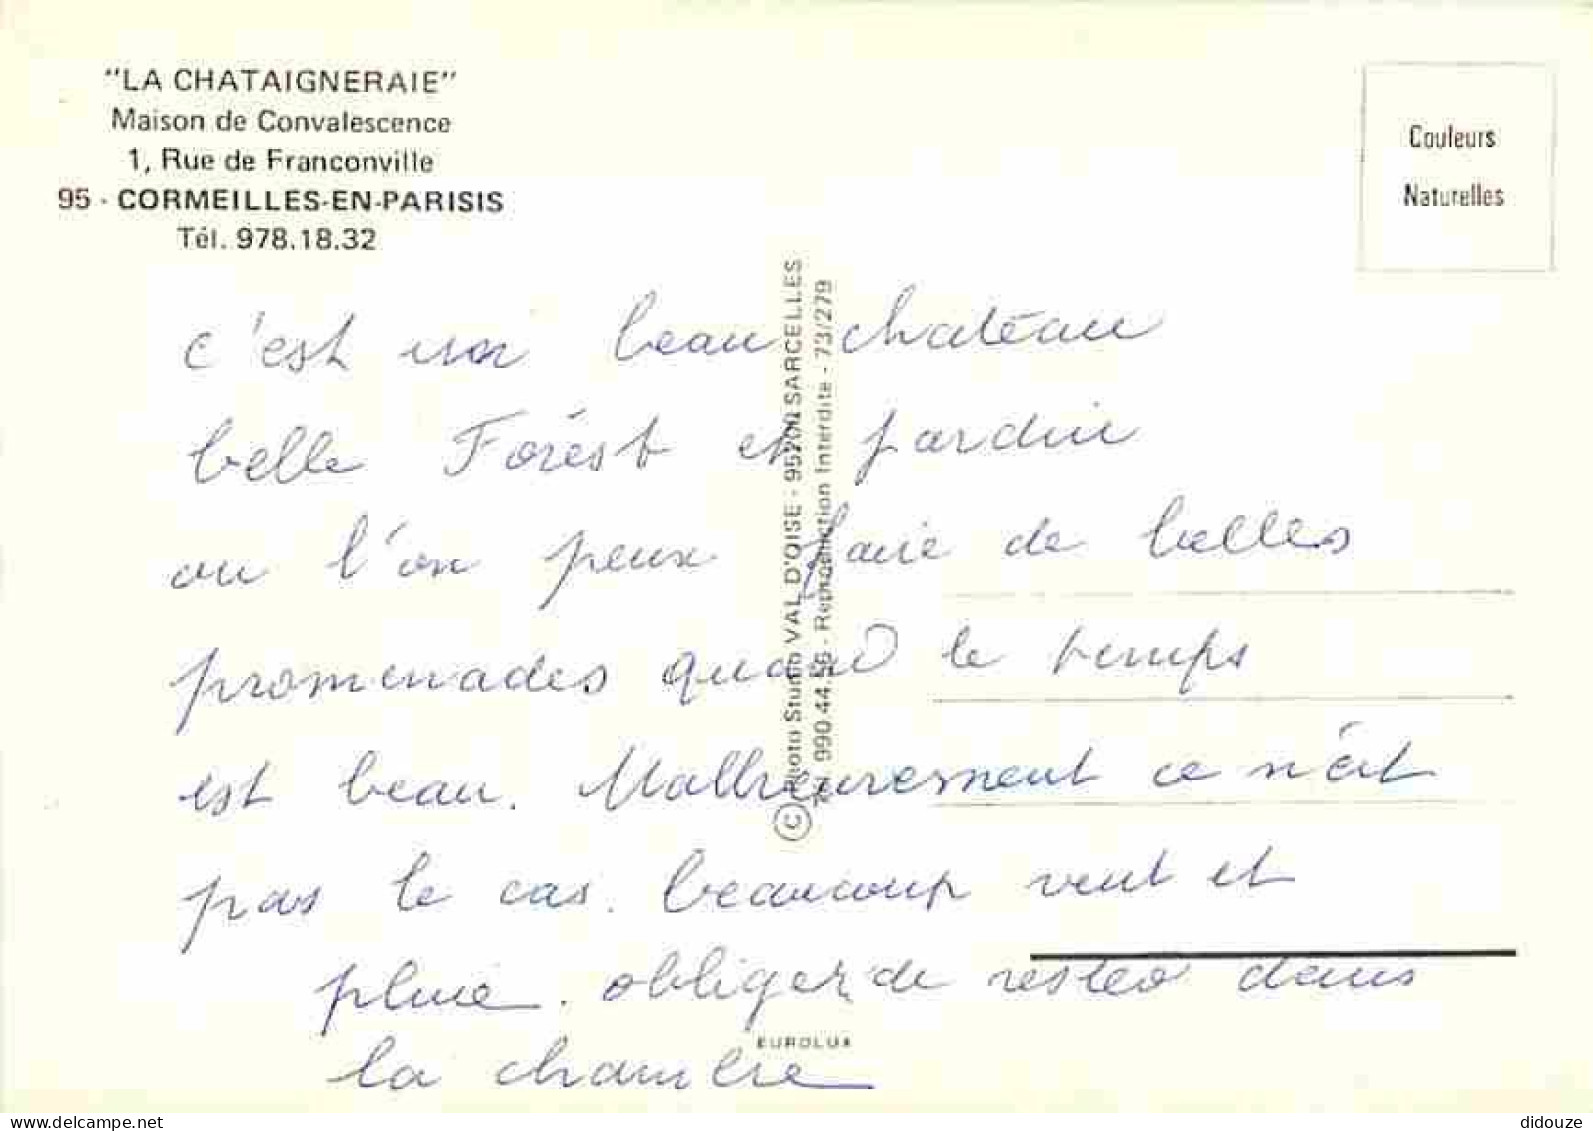 "LA CHATAIGNERAIE"
Maison de Convalescence
1, Rue de Franconville
95 - CORMEILLES-EN-PARISIS
Tél. 978.18.32
Couleurs
Naturelles
c'est un beau chatéau
belle Forést et jardin
ou l'on peux faire de belles
promenades quand le temps
est beau. Malheureusement ce n'est
pas le cas. beaucoup vent et
pluie. obliger de rester dans
la chambre
© Photo Studio VAL D'OISE - 95200 SARCELLES
Tél. 990.44.56 - Reproduction Interdite - 73/279
EUROLUX
delcampe.net
didouze